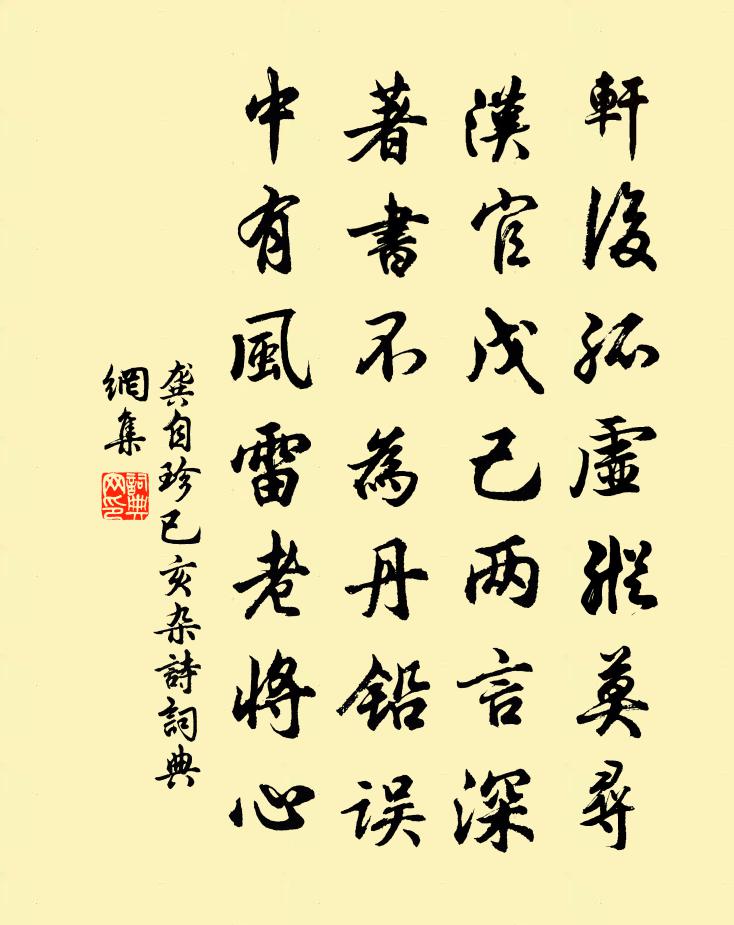 軒後孤虛縱莫尋
漢官戊己兩言深
著書不為丹鉛误
中有風雷老將心
龔自珍己亥杂詩詞典
網集
詞典
网印